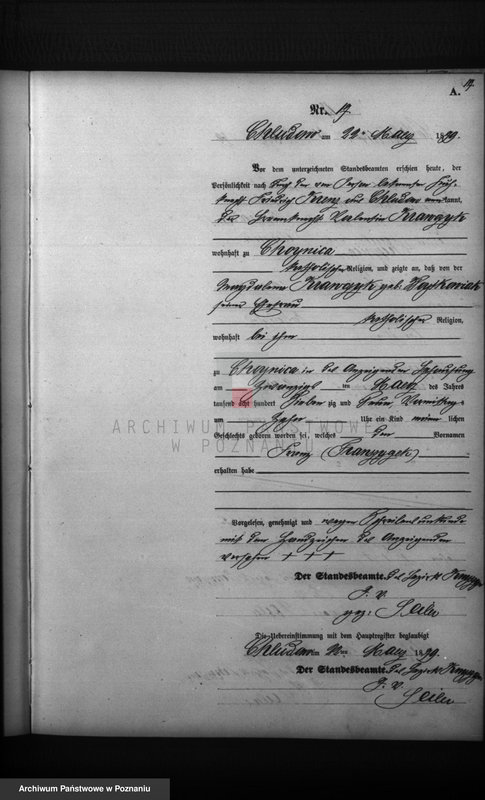 19.
A.
Nr. 19.
Chludowo am 22ten März 1879.
Vor dem unterzeichneten Standesbeamten erschien heute, der
Persönlichkeit nach
Chludowo kannt,
Valentin Krawczyk
wohnhaft zu Choynica
katholischer Religion, und zeigte an, daß von der
Magdalena Krawczyk geb. Wojtkowiak
seiner Ehefrau
katholischer Religion,
wohnhaft bei ihm
zu Choynica in des Anzeigenden Behausung
am zwanzigsten März des Jahres
tausend acht hundert sieben zig und neun Vormittags
um Uhr ein Kind männlichen
Geschlechts geboren worden sei, welches den Vornamen
Franz
erhalten habe
Vorgelesen, genehmigt und wegen Schreibensunkunde
mit dem Handzeichen des Anzeigenden
versehen + + +
Der Standesbeamte.
J. V.
gez:
Die Uebereinstimmung mit dem Hauptregister beglaubigt
Chludowo am 22ten März 1879.
Der Standesbeamte.
J. V.
ARCHIWUM PAŃSTWOWE
W POZNANIU
Archiwum Państwowe w Poznaniu